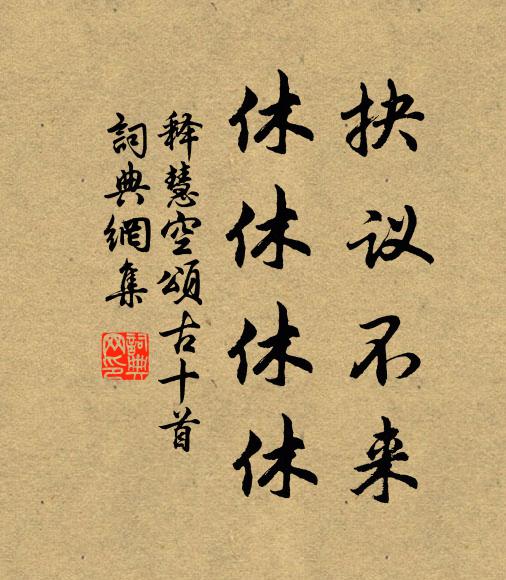 抉议不来
休休休休
释慧空頌古十首
詞典網集
詞典
网印